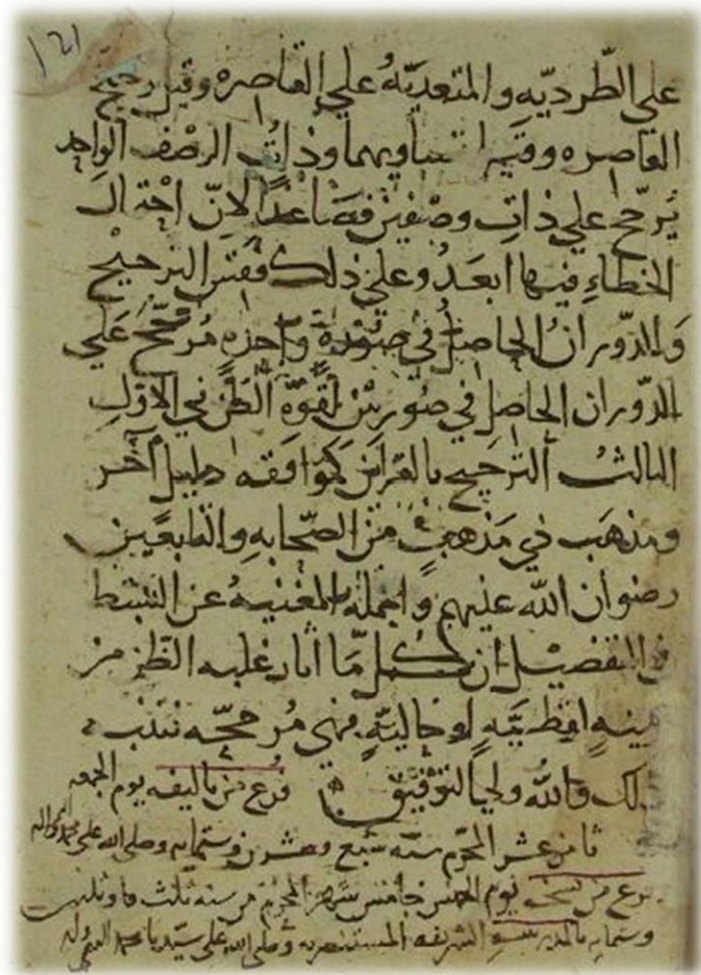 ١٤١
علي الطّرديّه والمتعديّةُ علي القاصره وقيل رجح
القاصره وقيل تساويهما وذاتُ الوصف الواحد
يُرجّح علي ذاتِ وصفين فصَاعدًا لانّ احتمال
الخطاءِ فيها ابعَدُ وعلي ذلك فقس الترجيح
وَالدّورانُ الحاصلُ في صُورة واحدهٍ مُرجّح عَلي
الدّوران الحاصل في صُورتيْن لقوّة الظن في الاوّلِ
الثالثُ الترجيح بالقراين كموافقه دليل آخر
ومذهَب ذي مَذهب من الصّحابهِ والتابعين
رضوان الله عليهم والجمله المغنيهُ عن التبسّط
في التفضيل ان كل مّا اثار غلبه الظن من
لفظيّه او حاليّهٍ فهي مُرجّحه
والله ولي التوفيق فرغ من تاليفه يوم الجمعه
ثامن عشر المحرّم سنه سَبع وعشرين وستمايه وصلي الله علي محمد واله
فرغ من نسخه يوم الخميس خامس شهر المحرم من سنه ثلث وثلثين
وستمايه بالمدرسة الشريفه المستنصريه وصلي الله علي سيّدنا محمد النبي واله